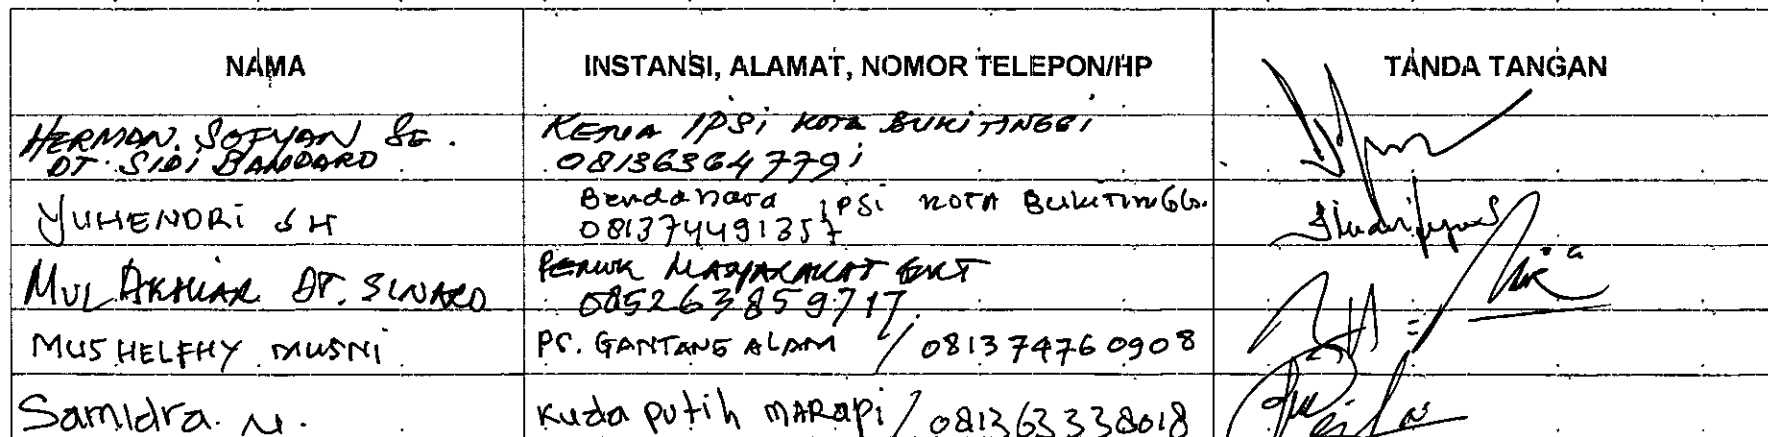 NAMA INSTANSI, ALAMAT, NOMOR TELEPON/HP TANDA TANGAN
HERMAN. SOFYAN SE. KETUA IPSI KOTA BUKITINGGI
DT. SIDI BANDARO 081363647791
YUHENDRI SH Bendahara IPSI KOTA BUKITINGGI.
081374491357
MUL AKHIAR DT. SINARO MASYARAKAT BKT
085263859717
MUSHELFHY MUSNI PS. GANTANG ALAM / 081374760908
Samidra. N. Kuda putih MARAPi / 081363338018